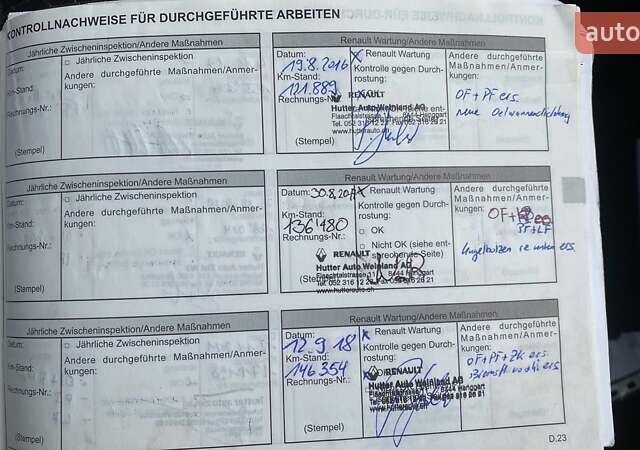 KONTROLLNACHWEISE FÜR DURCHGEFÜHRTE ARBEITEN
auto
Jährliche Zwischeninspektion/Andere Maßnahmen
Datum:
Km-Stand:
Rechnungs-Nr.:
(Stempel)
□ Jährliche Zwischeninspektion
Andere durchgeführte Maßnahmen/Anmerkungen:
Renault Wartung/Andere Maßnahmen
Datum:
19.8.2016
Km-Stand:
121.889
Rechnungs-Nr.:
(Stempel)
x Renault Wartung
Kontrolle gegen Durch-
rostung:
RENAULT
Hutter Auto Weinland AG
Flaachtalstrasse 11 8444 Henggart
Tel. 052 316 12 23 Fax 052 316 26 21
www.hutterauto.ch
Andere durchgeführte
Maßnahmen/Anmer-
kungen:
OF + PF ers.
neue Oelwannendichtung
Jährliche Zwischeninspektion/Andere Maßnahmen
Datum:
Km-Stand:
Rechnungs-Nr.:
(Stempel)
□ Jährliche Zwischeninspektion
Andere durchgeführte Maßnahmen/Anmer-
kungen:
Renault Wartung/Andere Maßnahmen
Datum:
30.8.2017
Km-Stand:
136'180
Rechnungs-Nr.:
(Stempel)
x Renault Wartung
Kontrolle gegen Durch-
rostung:
□ OK
□ Nicht OK (siehe ent-
sprechende Seite)
RENAULT
Hutter Auto Weinland AG
Flaachtalstrasse 11 8444 Henggart
Tel. 052 316 12 23 Fax 052 316 26 21
www.hutterauto.ch
Andere durchgeführte
Maßnahmen/Anmer-
kungen:
OF +
PF+LF
D.23
Jährliche Zwischeninspektion/Andere Maßnahmen
Datum:
Km-Stand:
Rechnungs-Nr.:
(Stempel)
□ Jährliche Zwischeninspektion
Andere durchgeführte Maßnahmen/Anmer-
kungen:
Renault Wartung/Andere Maßnahmen
Datum:
12.9.18
Km-Stand:
146354
Rechnungs-Nr.:
(Stempel)
x Renault Wartung
Kontrolle gegen Durch-
rostung:
RENAULT
Hutter Auto Weinland AG
Flaachtalstrasse 11 8444 Henggart
www.hutterauto.ch
Andere durchgeführte
Maßnahmen/Anmer-
kungen:
OF + PF + ZK ers.
D.23